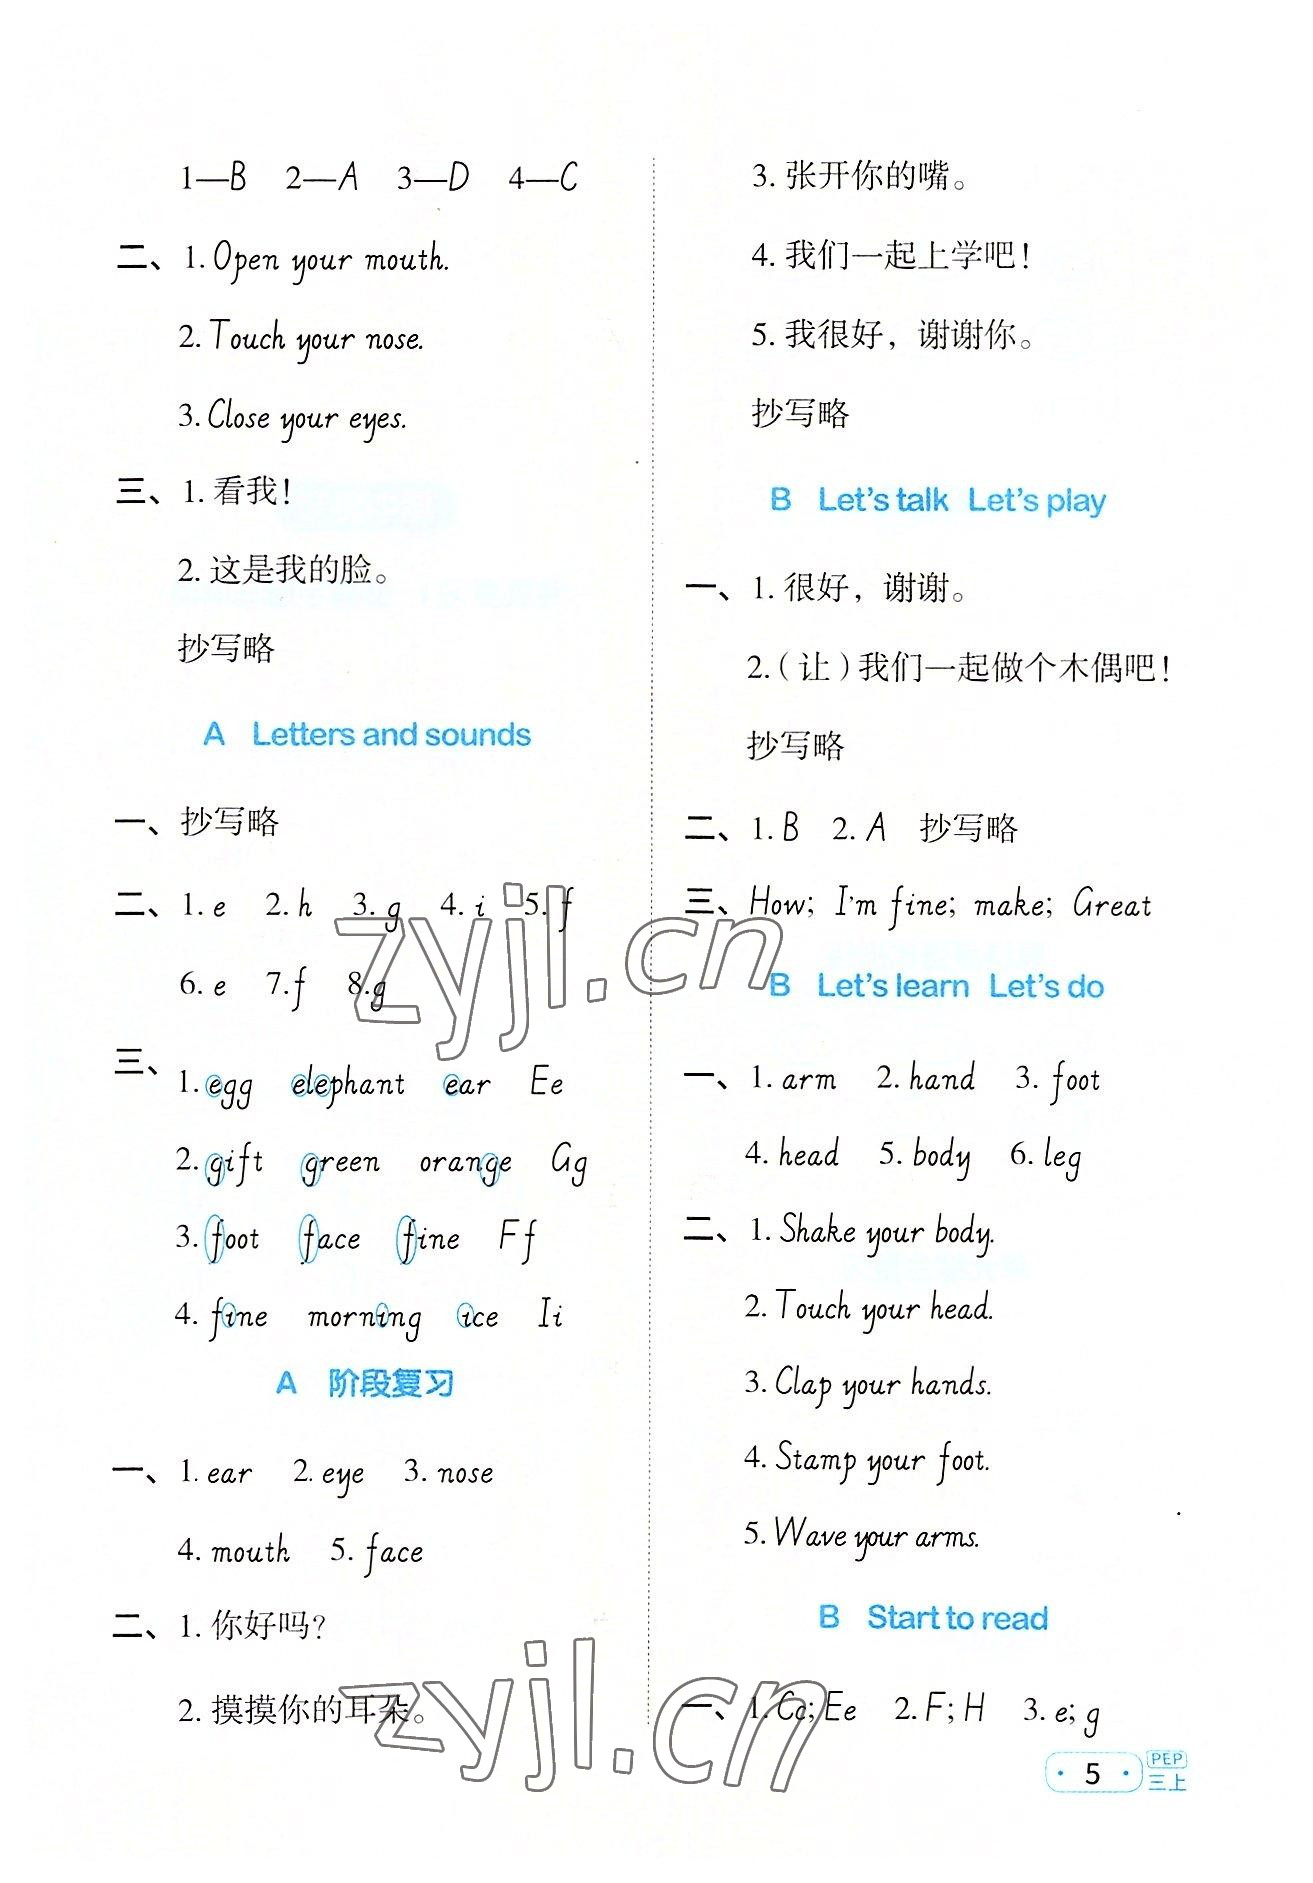 1—B 2—A 3—D 4—C
二、1. Open your mouth.
2. Touch your nose.
3. Close your eyes.
三、1. 看我！
2. 这是我的脸。
抄写略
A Letters and sounds
一、抄写略
二、1. e 2. h 3. g 4. i 5. f
6. e 7. f 8. g
三、1. egg elephant ear Ee
2. gift green orange Gg
3. foot face fine Ff
4. fine morning ice Ii
A 阶段复习
一、1. ear 2. eye 3. nose
4. mouth 5. face
二、1. 你好吗？
2. 摸摸你的耳朵。
3. 张开你的嘴。
4. 我们一起上学吧！
5. 我很好，谢谢你。
抄写略
B Let's talk Let's play
一、1. 很好，谢谢。
2.（让）我们一起做个木偶吧！
抄写略
二、1. B 2. A 抄写略
三、How; I'm fine; make; Great
B Let's learn Let's do
一、1. arm 2. hand 3. foot
4. head 5. body 6. leg
二、1. Shake your body.
2. Touch your head.
3. Clap your hands.
4. Stamp your foot.
5. Wave your arms.
B Start to read
一、1. Cc; Ee 2. F; H 3. e; g
· 5 · PEP
三上
zyjl.cn
zyjl.cn